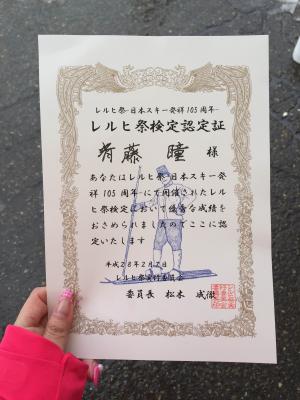 レルヒ祭-日本スキー発祥105周年-
レルヒ祭検定認定証
斉藤 瞳 様
あなたはレルヒ祭-日本スキー発
祥105周年-にて開催されたレル
ヒ祭検定において優秀な成績を
おさめられましたのでここに認
定いたします
平成28年2月7日
レルヒ祭実行委員会
委員長 松本 成徹